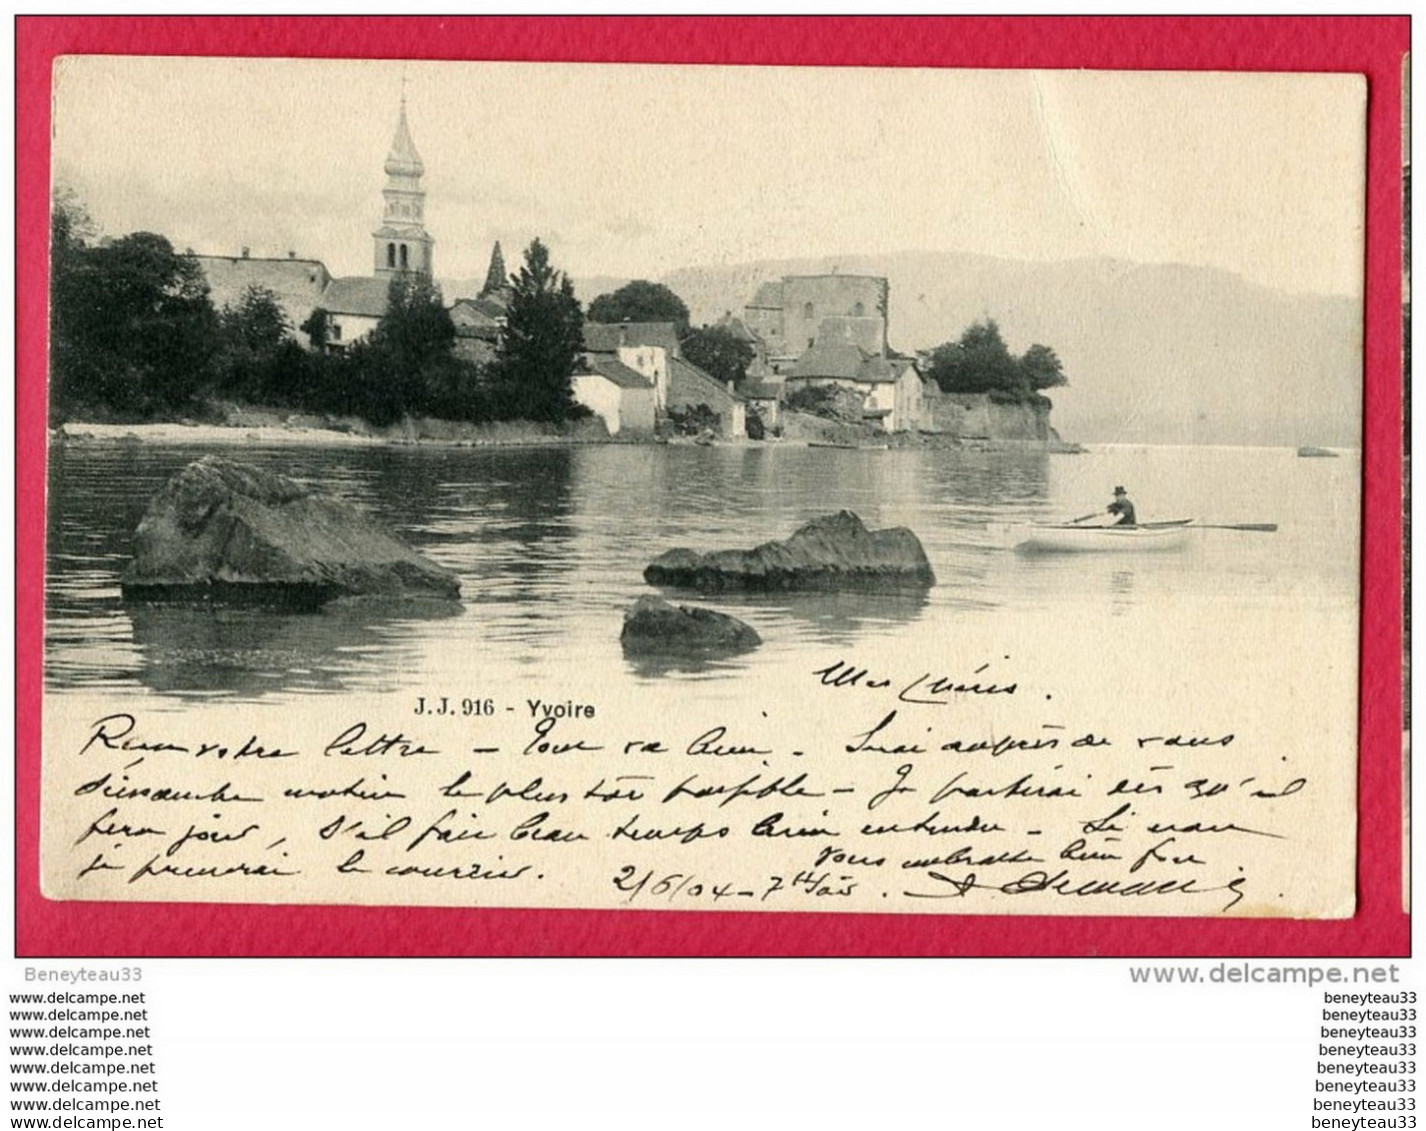 Mes chéris.
J.J. 916 - Yvoire
Reçu votre lettre – Tout va bien – Serai auprès de vous
dimanche matin le plus tôt possible – Je partirai dès qu'il
fera jour, s'il fait beau temps bien entendu – Si non
je prendrai le courrier.
Vous embrasse bien fort
2/6/04 – 7h soir.
Beneyteau33
www.delcampe.net
www.delcampe.net
www.delcampe.net
www.delcampe.net
www.delcampe.net
www.delcampe.net
www.delcampe.net
www.delcampe.net
www.delcampe.net
beneyteau33
beneyteau33
beneyteau33
beneyteau33
beneyteau33
beneyteau33
beneyteau33
beneyteau33